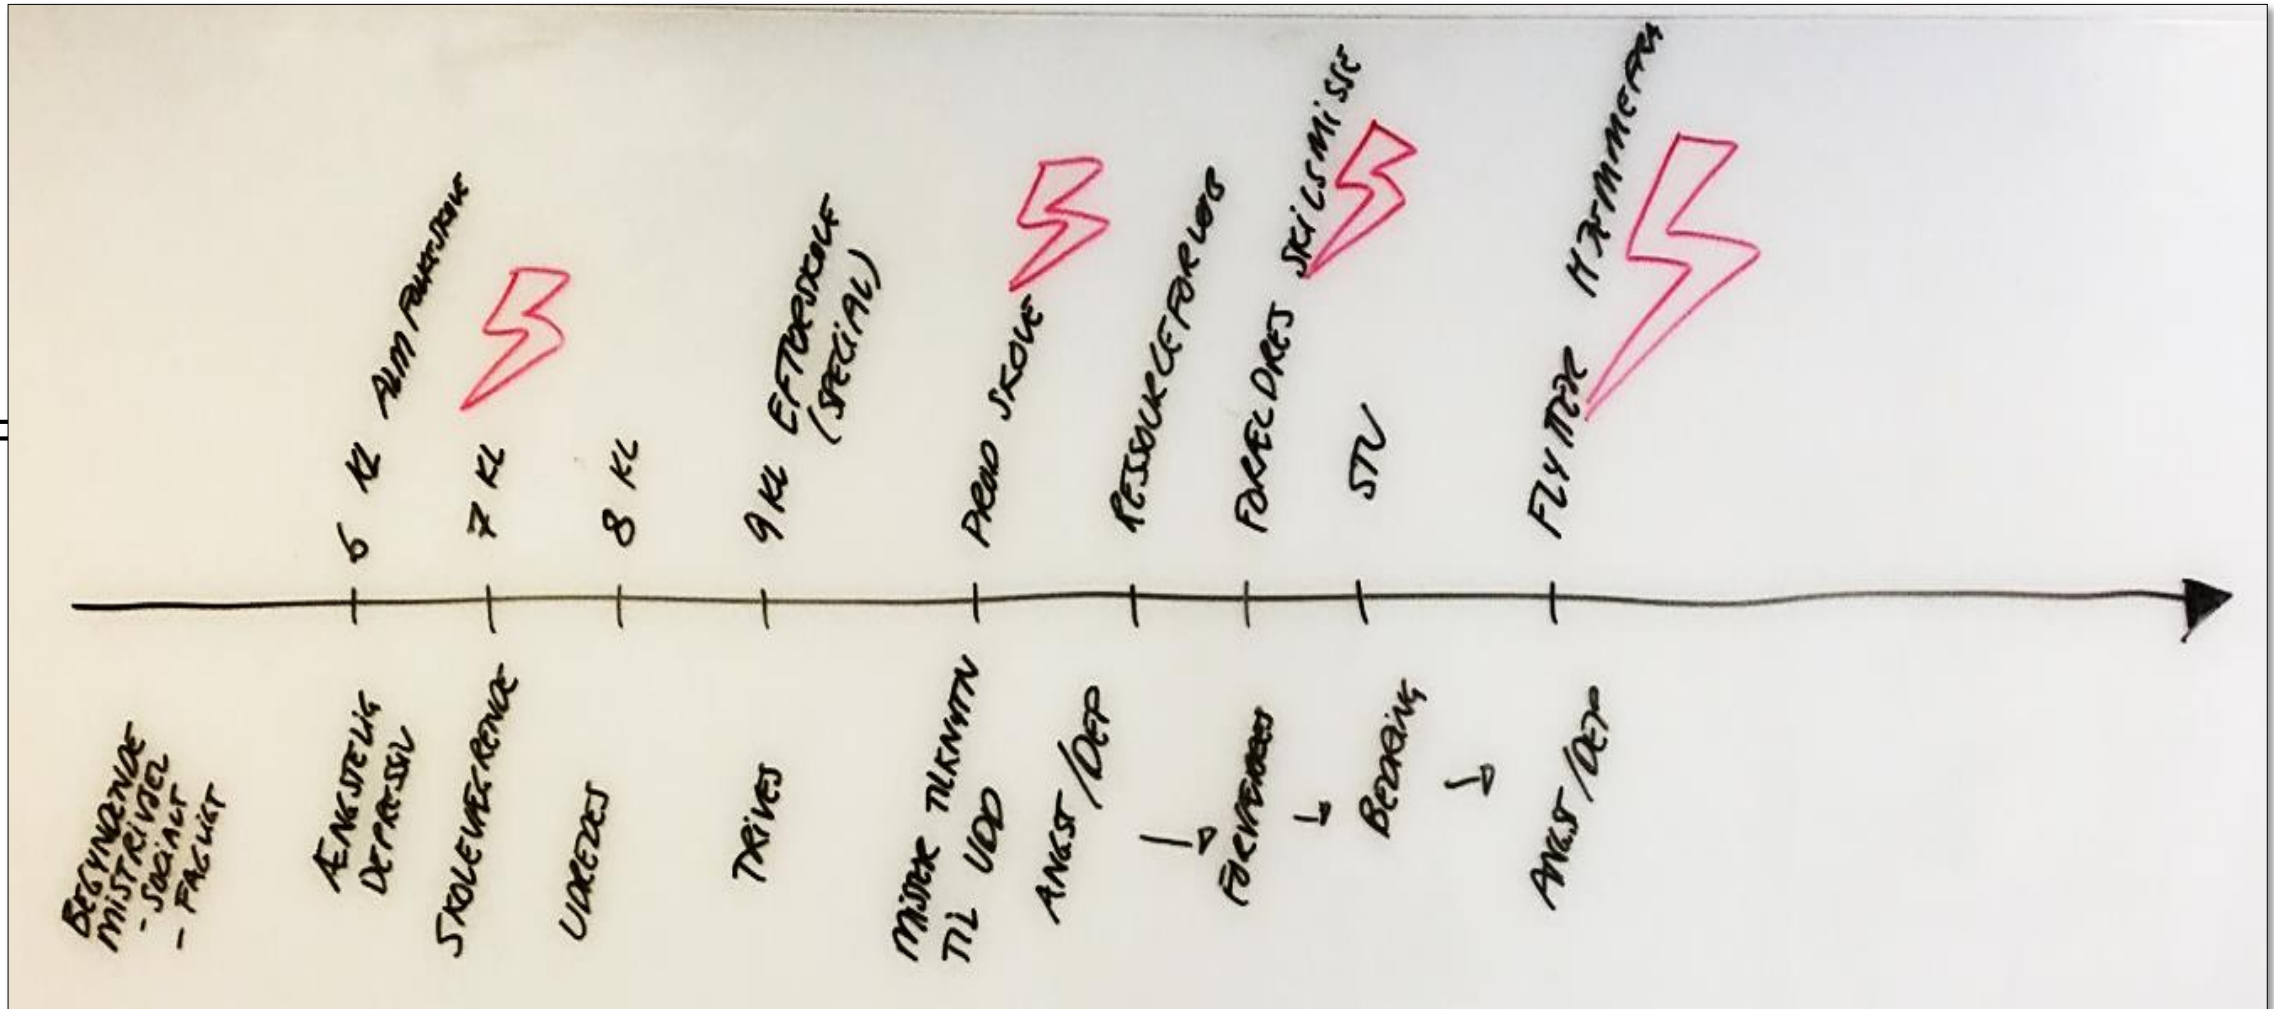 6 KL ALM FOLKESKOLE
7 KL
8 KL
9 KL EFTERSKOLE
(SPECIAL)
PROD SKOLE
RESSOURCEFORLØB
FORÆLDRES SKILSMISSE
STU
FLYTTER HJEMMEFRA
BEGYNDENDE
MISTRIVSEL
- SOCIALT
- FAGLIGT
ÆNGSTELIG
DEPRESSIV
SKOLEVÆGRENDE
UDREDES
TRIVES
MISTER TILKNYTN
TIL UDD
ANGST/DEP
FORVÆRRES
BEDRING
ANGST/DEP